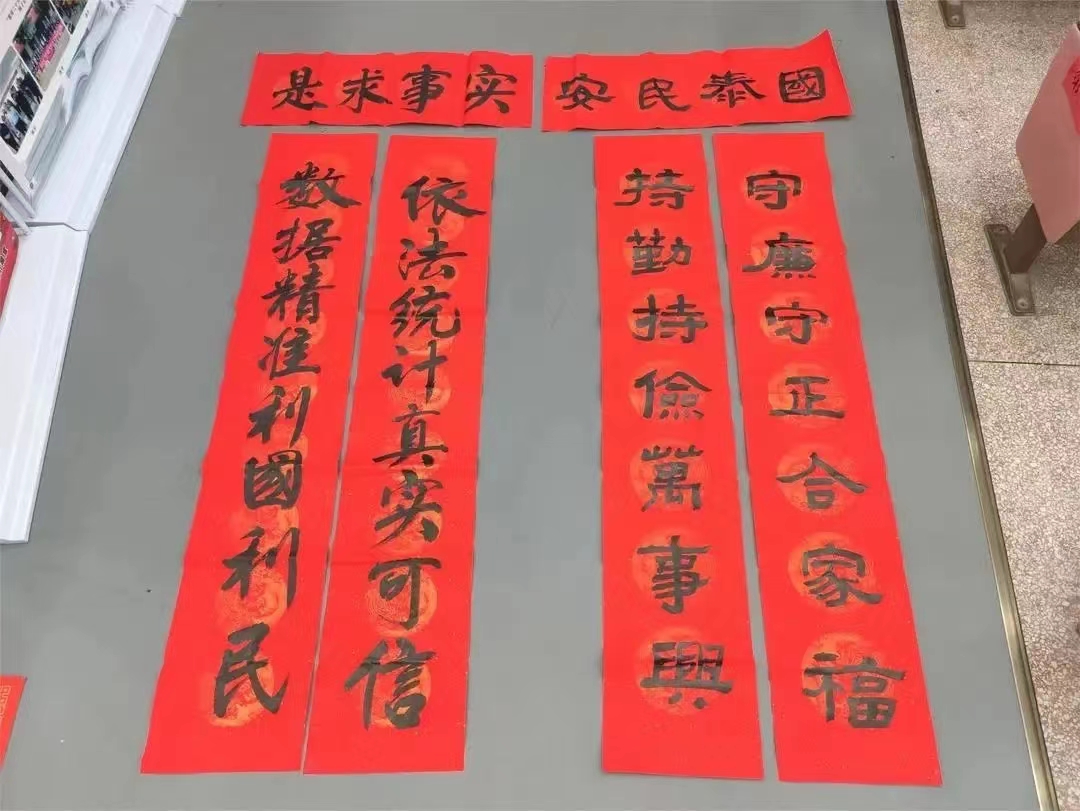 國泰民安
守廉守正合家福
持勤持儉萬事興
实事求是
依法统计真实可信
数据精准利國利民